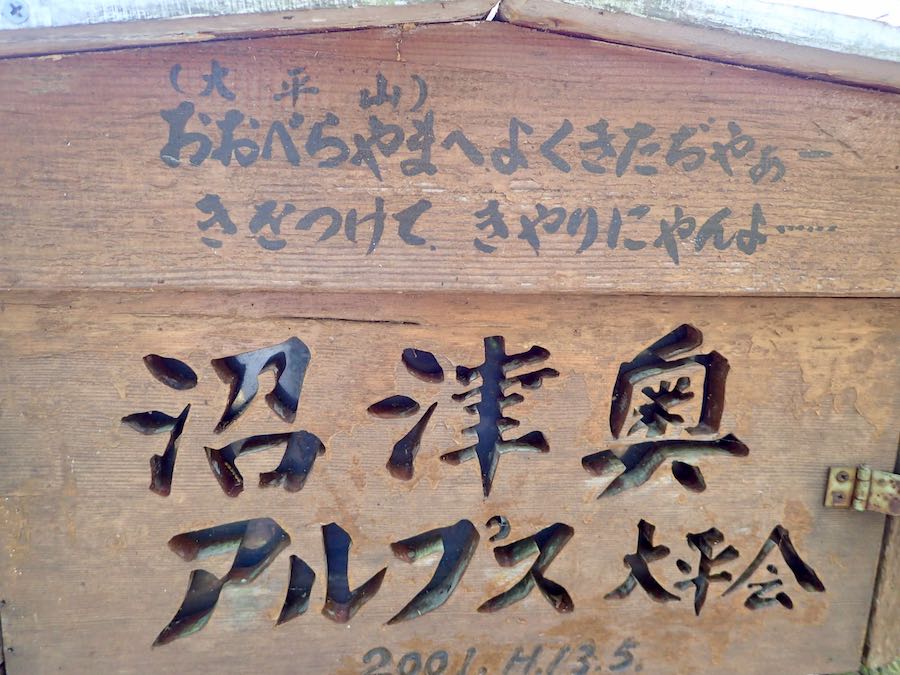 (大平山)
おおべらやまへよくきたぢゃぁー
きをつけて、きやりにゃんよ……
沼津奥
アルプス大平会
2001.H.13.5.